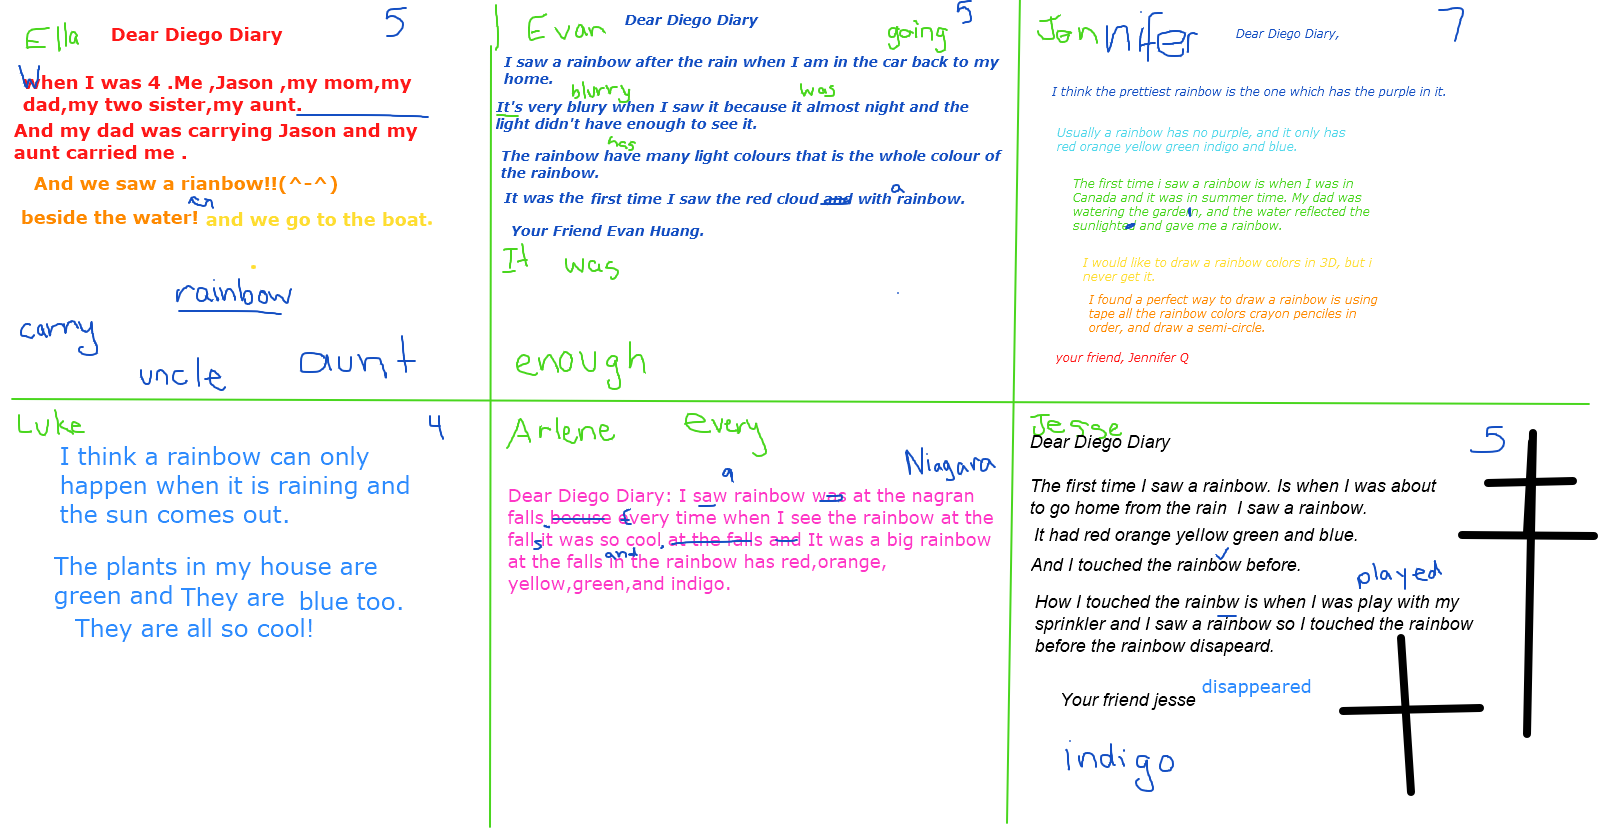 Ella Dear Diego Diary 5
When I was 4 .Me ,Jason ,my mom,my
dad,my two sister,my aunt.
And my dad was carrying Jason and my
aunt carried me .
And we saw a rianbow!!(^-^)
beside the water! and we go to the boat.
rainbow
carry
uncle aunt
Evan Dear Diego Diary going 5
I saw a rainbow after the rain when I am in the car back to my
home.
blurry was
It's very blury when I saw it because it almost night and the
light didn't have enough to see it.
has
The rainbow have many light colours that is the whole colour of
the rainbow.
a
It was the first time I saw the red cloud and with rainbow.
Your Friend Evan Huang.
It was
enough
Jennifer Dear Diego Diary, 7
I think the prettiest rainbow is the one which has the purple in it.
Usually a rainbow has no purple, and it only has
red orange yellow green indigo and blue.
The first time i saw a rainbow is when I was in
Canada and it was in summer time. My dad was
watering the garden, and the water reflected the
sunlighted and gave me a rainbow.
I would like to draw a rainbow colors in 3D, but I
never get it.
I found a perfect way to draw a rainbow is using
tape all the rainbow colors crayon penciles in
order, and draw a semi-circle.
your friend, Jennifer Q
Luke 4
I think a rainbow can only
happen when it is raining and
the sun comes out.
The plants in my house are
green and They are blue too.
They are all so cool!
Arlene Every
Niagara
a
Dear Diego Diary: I saw rainbow was at the nagran
falls becuse every time when I see the rainbow at the
fall it was so cool at the falls and It was a big rainbow
and
at the falls in the rainbow has red,orange,
yellow,green,and indigo.
Jesse
Dear Diego Diary 5
The first time I saw a rainbow. Is when I was about
to go home from the rain I saw a rainbow.
It had red orange yellow green and blue.
And I touched the rainbow before.
played
How I touched the rainbw is when I was play with my
sprinkler and I saw a rainbow so I touched the rainbow
before the rainbow disapeard.
Your friend jesse disappeared
indigo